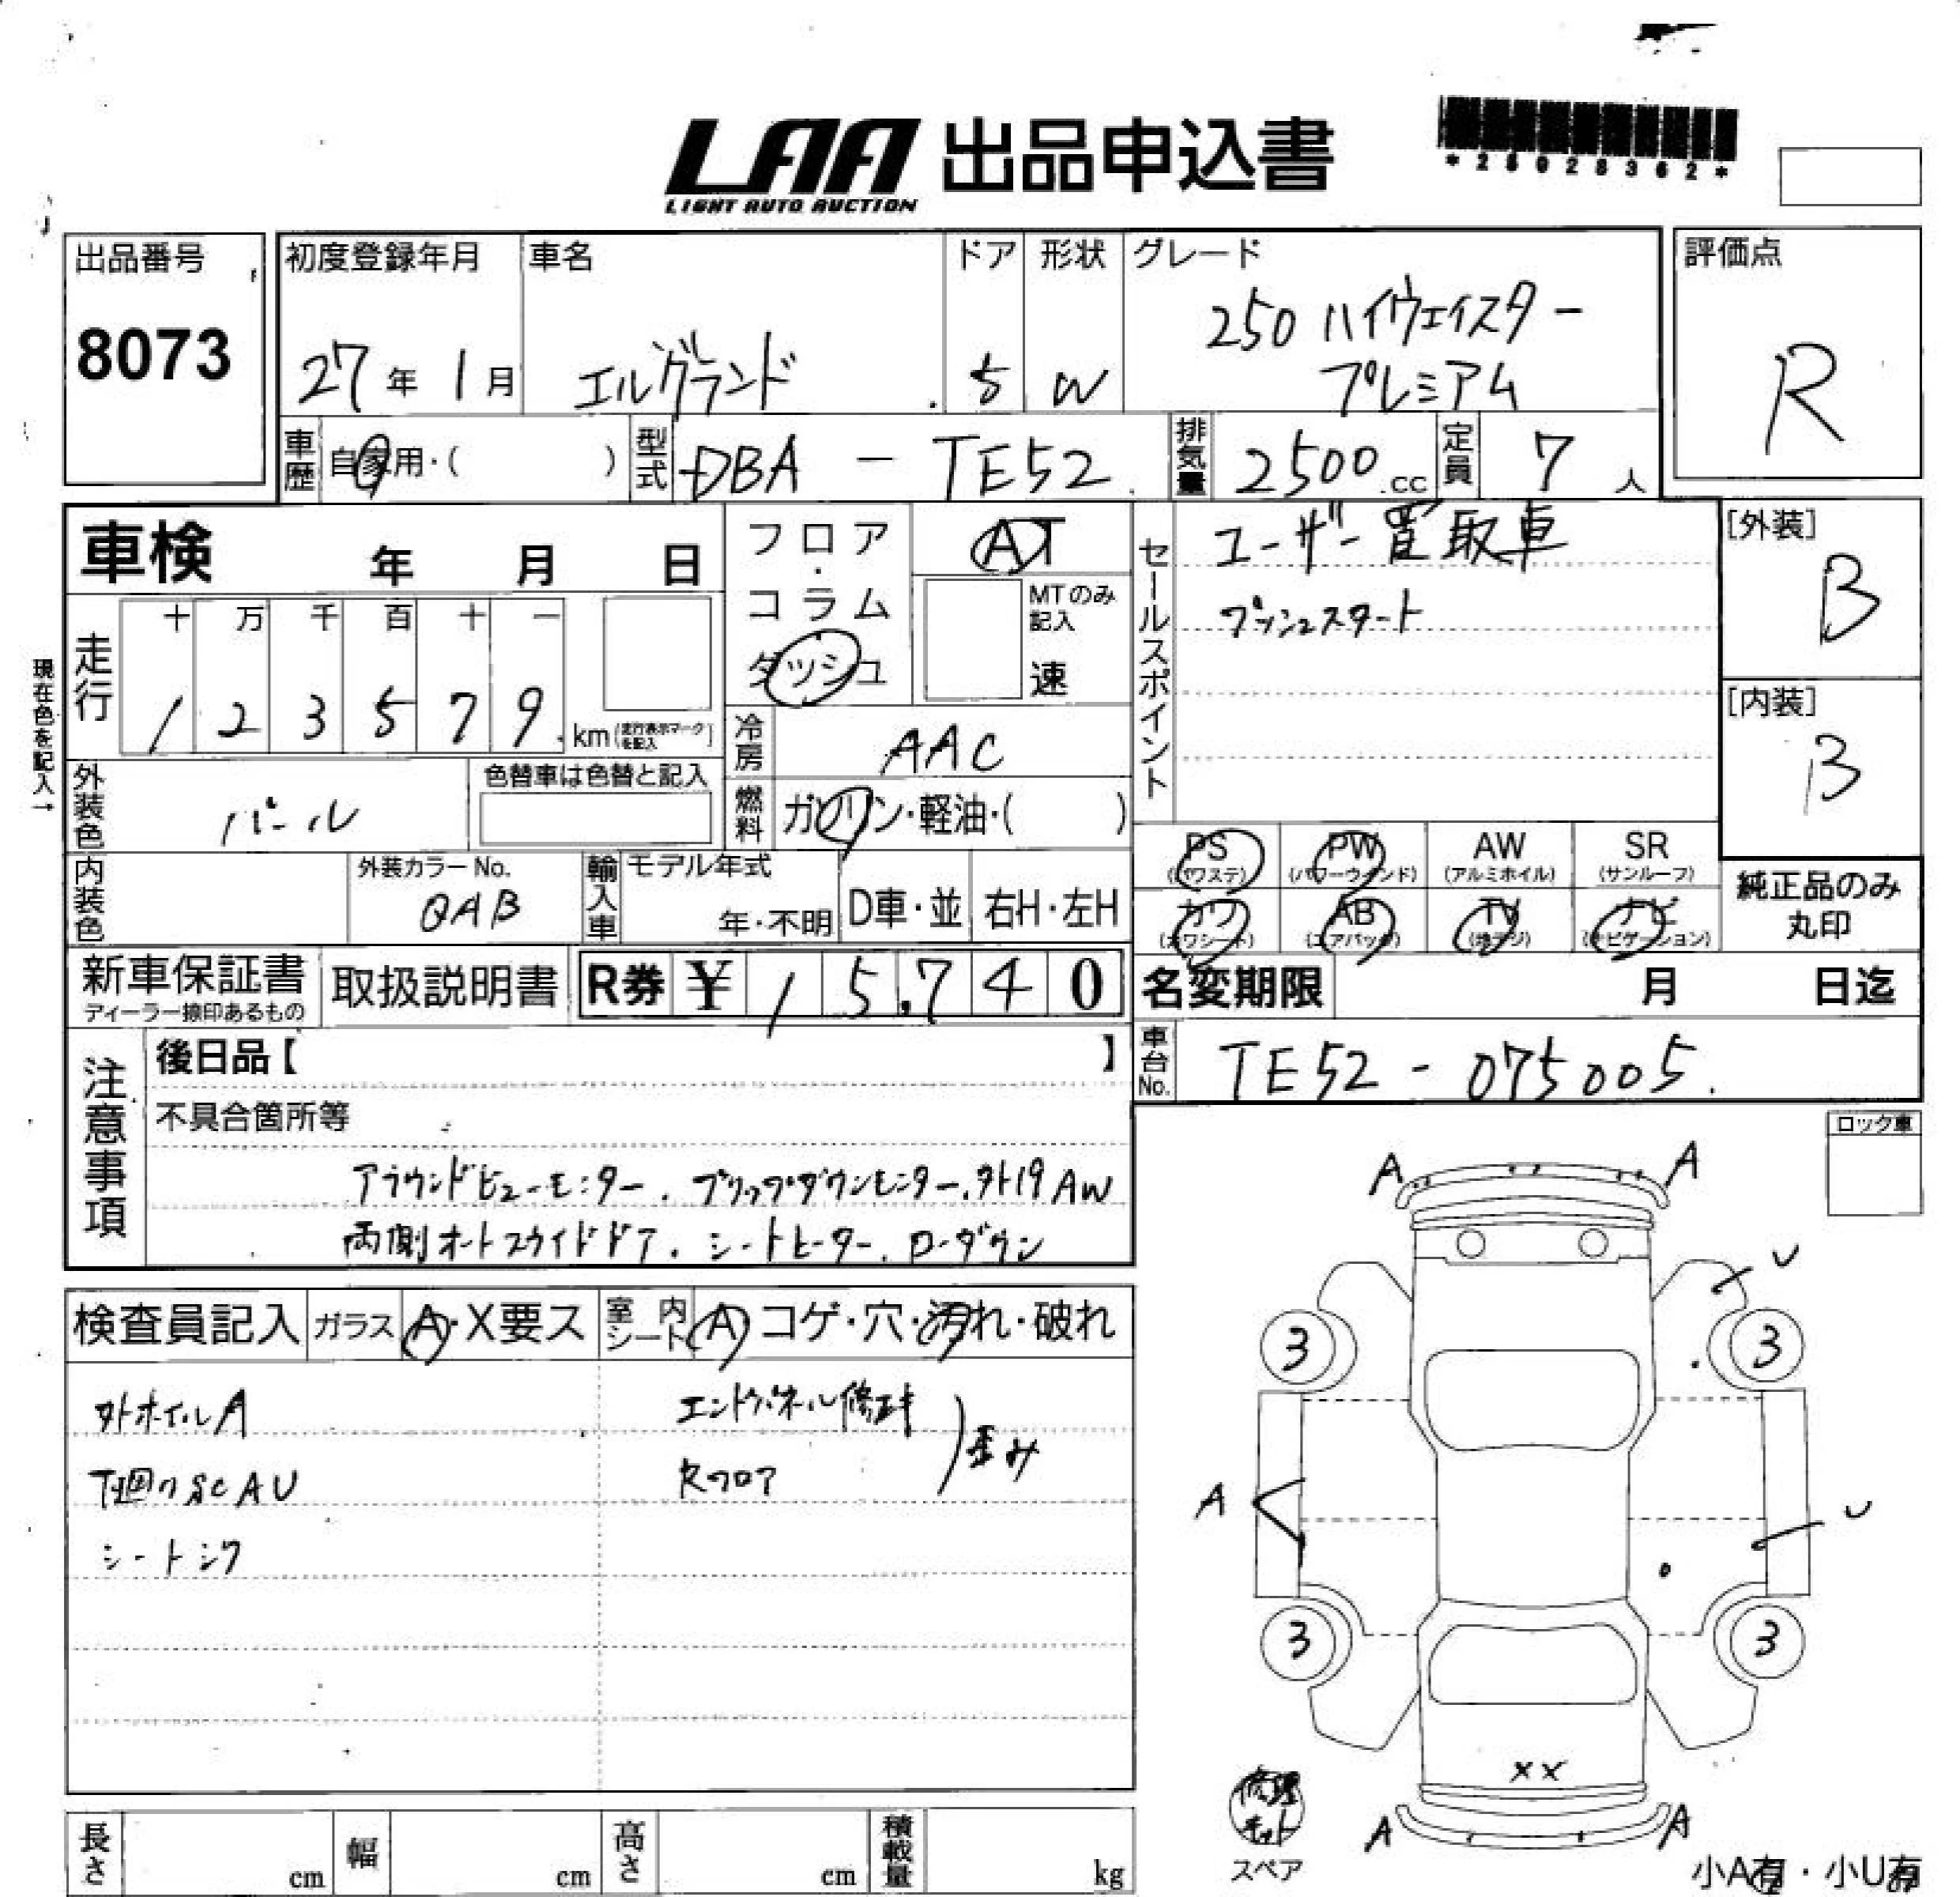 LAA 出品申込書
LIGHT AUTO AUCTION
*28028362*
出品番号
8073
初度登録年月
27年1月
車名
エルグランド
ドア
5
形状
W
グレード
250 ハイウェイスター
プレミアム
評価点
R
車歴 自家用・( )
型式 DBA - TE52
排気量 2500 .cc
定員 7 人
車検 年 月 日
フロア・コラム
ダッシュ
AT
MTのみ記入
速
セールスポイント
ユーザー買取車
プッシュスタート
[外装]
B
[内装]
B
現在色を記入→
走行
十 万 千 百 十 一
1 2 3 5 7 9 km (走行表示マークを記入)
冷房 AAC
外装色 パール
色替車は色替と記入
燃料 ガソリン・軽油・( )
PS (パワステ) PW (パワーウインド) AW (アルミホイル) SR (サンルーフ)
カワ (カワシート) AB (エアバッグ) TV (地デジ) ナビ (ナビゲーション)
純正品のみ
丸印
内装色
外装カラーNo.
QAB
輸入車 モデル年式
年・不明 D車・並 右H・左H
新車保証書
ディーラー捺印あるもの
取扱説明書
R券 ¥ 15,740
名変期限 月 日迄
車台No. TE52 - 075005.
注意事項
後日品【 】
不具合箇所等
アラウンドビューモニター. フリップダウンモニター. 外19 AW
両側オートスライドドア. シートヒーター. ローダウン
ロック車
検査員記入 ガラス A・X要ス 室内シート A コゲ・穴・汚れ・破れ
外ホイルA
下廻りSCAU
シートシワ
エンドパネル修正キ
Rフロア
歪み
A A
U
3 3
A U
3 3
XX
A A
修理キット
スペア
小A有・小U有
長さ cm 幅 cm 高さ cm 積載量 kg